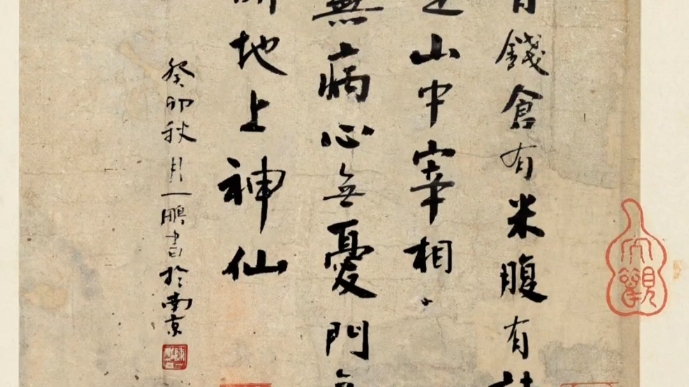 錢倉有米腹有
山中宰相
無病心無憂門
地上神仙
癸卯秋月一鵬書於南京